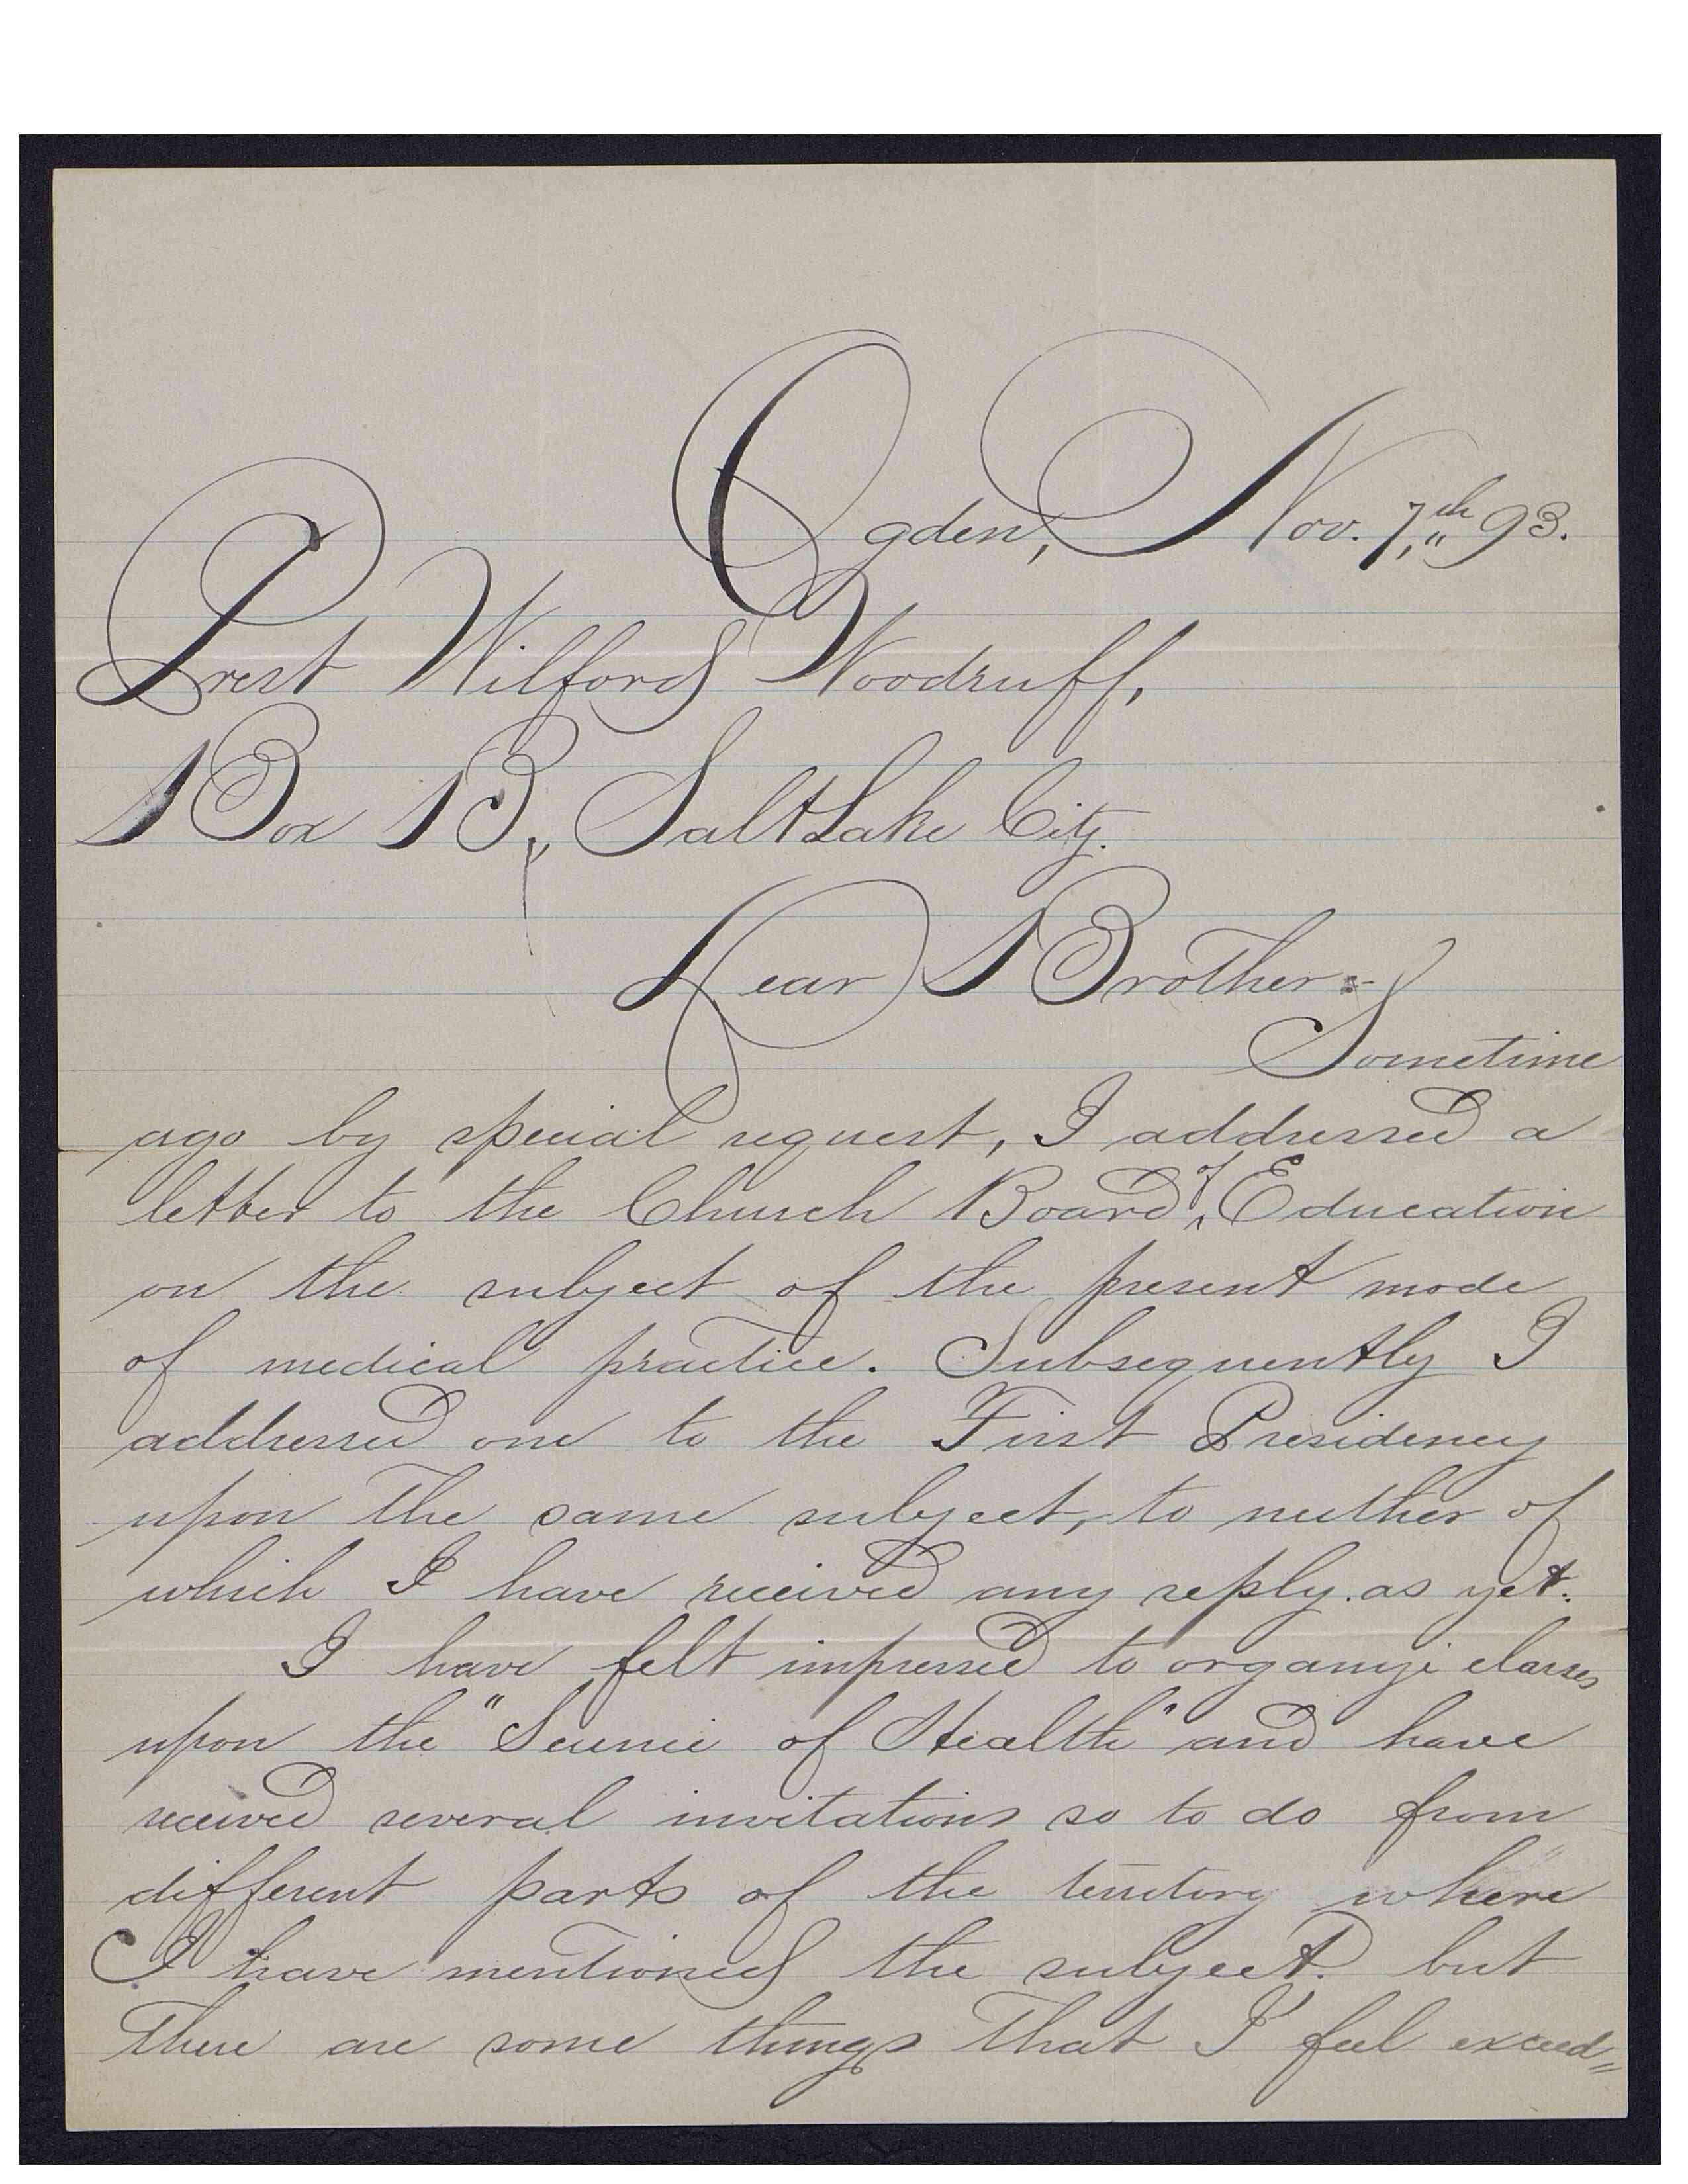 Ogden, Nov. 7,"th 93.
Prest Wilford Woodruff,
Box B, Salt Lake City.
Dear Brother:-
Sometime
ago by special request, I addressed a
letter to the Church Board of Education
on the subject of the present mode
of medical practice. Subsequently I
addressed one to the First Presidency
upon the same subject, to neither of
which I have received any reply as yet.
I have felt impressed to organize classes
upon the "Science of Health" and have
received several invitations so to do from
different parts of the territory where
I have mentioned the subject. but
there are some things that I feel exceed=